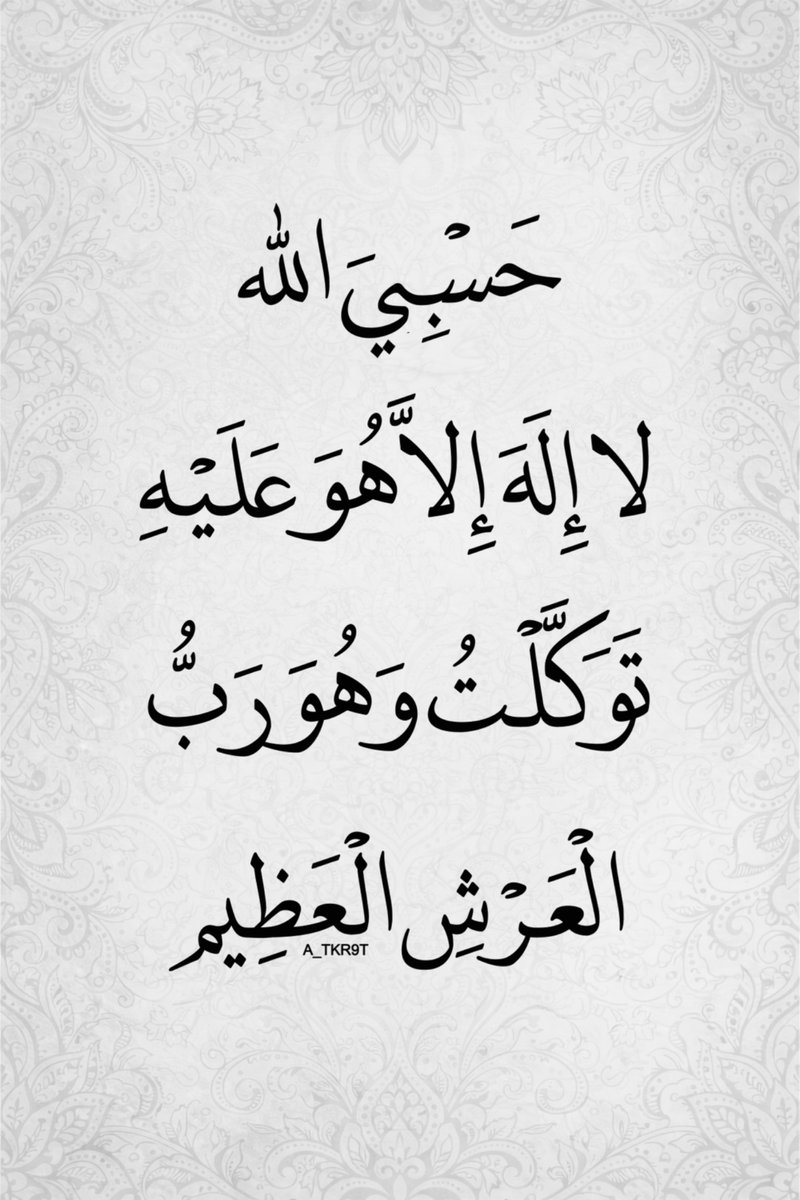 حَسْبِيَ الله
لا إِلَهَ إِلاَّ هُوَ عَلَيْهِ
تَوَكَّلْتُ وَهُوَ رَبُّ
الْعَرْشِ الْعَظِيم
A_TKR9T